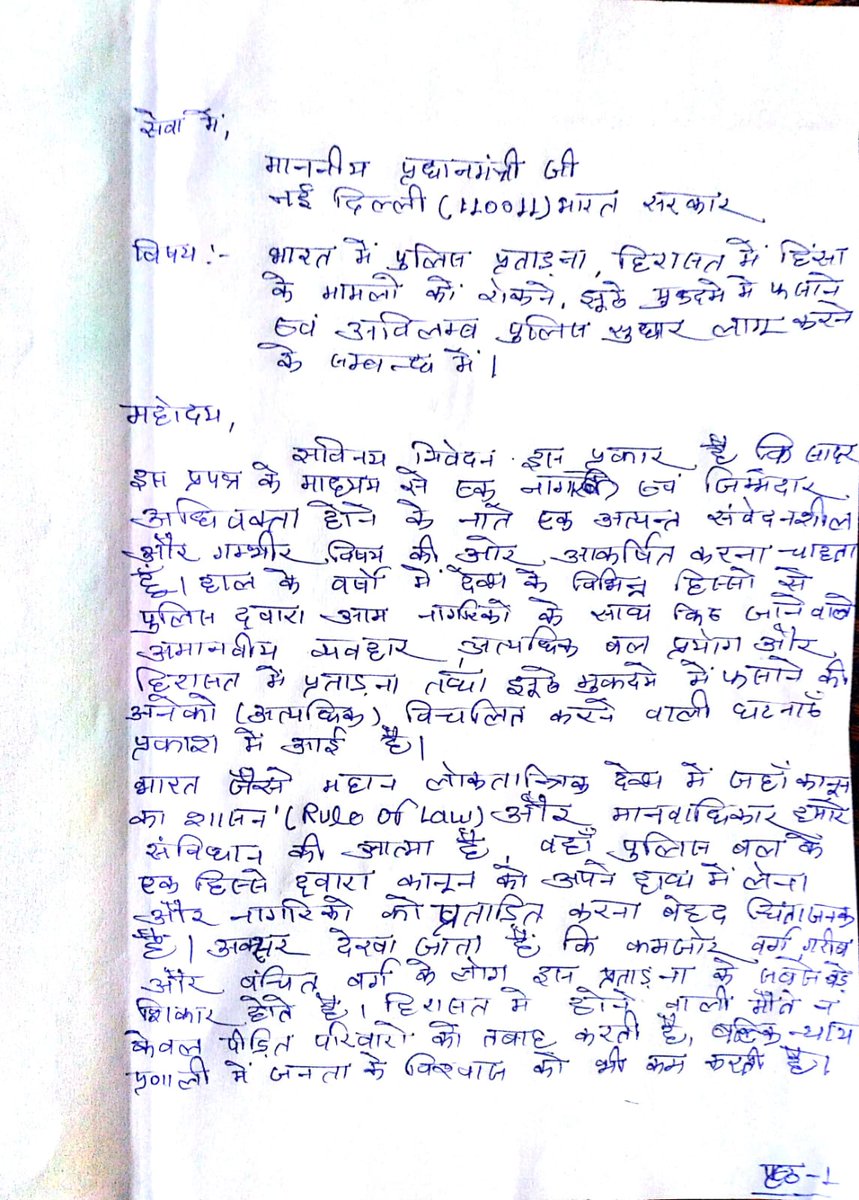 सेवा में,
माननीय प्रधानमंत्री जी
नई दिल्ली (110011) भारत सरकार
विषय :- भारत में पुलिस प्रताड़ना, हिरासत में हिंसा
के मामलो को रोकने, झूठे मुकदमे मे फसाने
एवं अविलम्ब पुलिस सुधार लागू करने
के सम्बन्ध में।
महोदय,
सविनय निवेदन इस प्रकार है कि सादर
इस प्रपत्र के माध्यम से एक नागरिक एवं जिम्मेदार
अधिवक्ता होने के नाते एक अत्यन्त संवेदनशील
और गम्भीर विषय की ओर आकर्षित करना चाहता
हूँ। हाल के वर्षो में देश के विभिन्न हिस्सो से
पुलिस द्वारा आम नागरिको के साथ किए जाने वाले
अमानवीय व्यवहार, अत्यधिक बल प्रयोग और
हिरासत में प्रताड़ना तथा झूठे मुकदमे में फसाने की
अनेको (अत्यधिक) विचलित करने वाली घटनाएँ
प्रकाश में आई है।
भारत जैसे महान लोकतान्त्रिक देश में जहाँ कानून
का शासन' (Rule of Law) और मानवाधिकार हमारे
संविधान की आत्मा है, वहाँ पुलिस बल के
एक हिस्से द्वारा कानून को अपने हाथ में लेना
और नागरिको को प्रताड़ित करना बेहद चिंताजनक
है। अक्सर देखा जाता है कि कमजोर वर्ग, गरीब
और वंचित वर्ग के लोग इस प्रताड़ना के सबसे बड़े
शिकार होते है। हिरासत मे होने वाली मौते न
केवल पीड़ित परिवारो को तबाह करती है, बल्कि न्याय
प्रणाली में जनता के विश्वास को भी कम करती है।
पृष्ठ-1